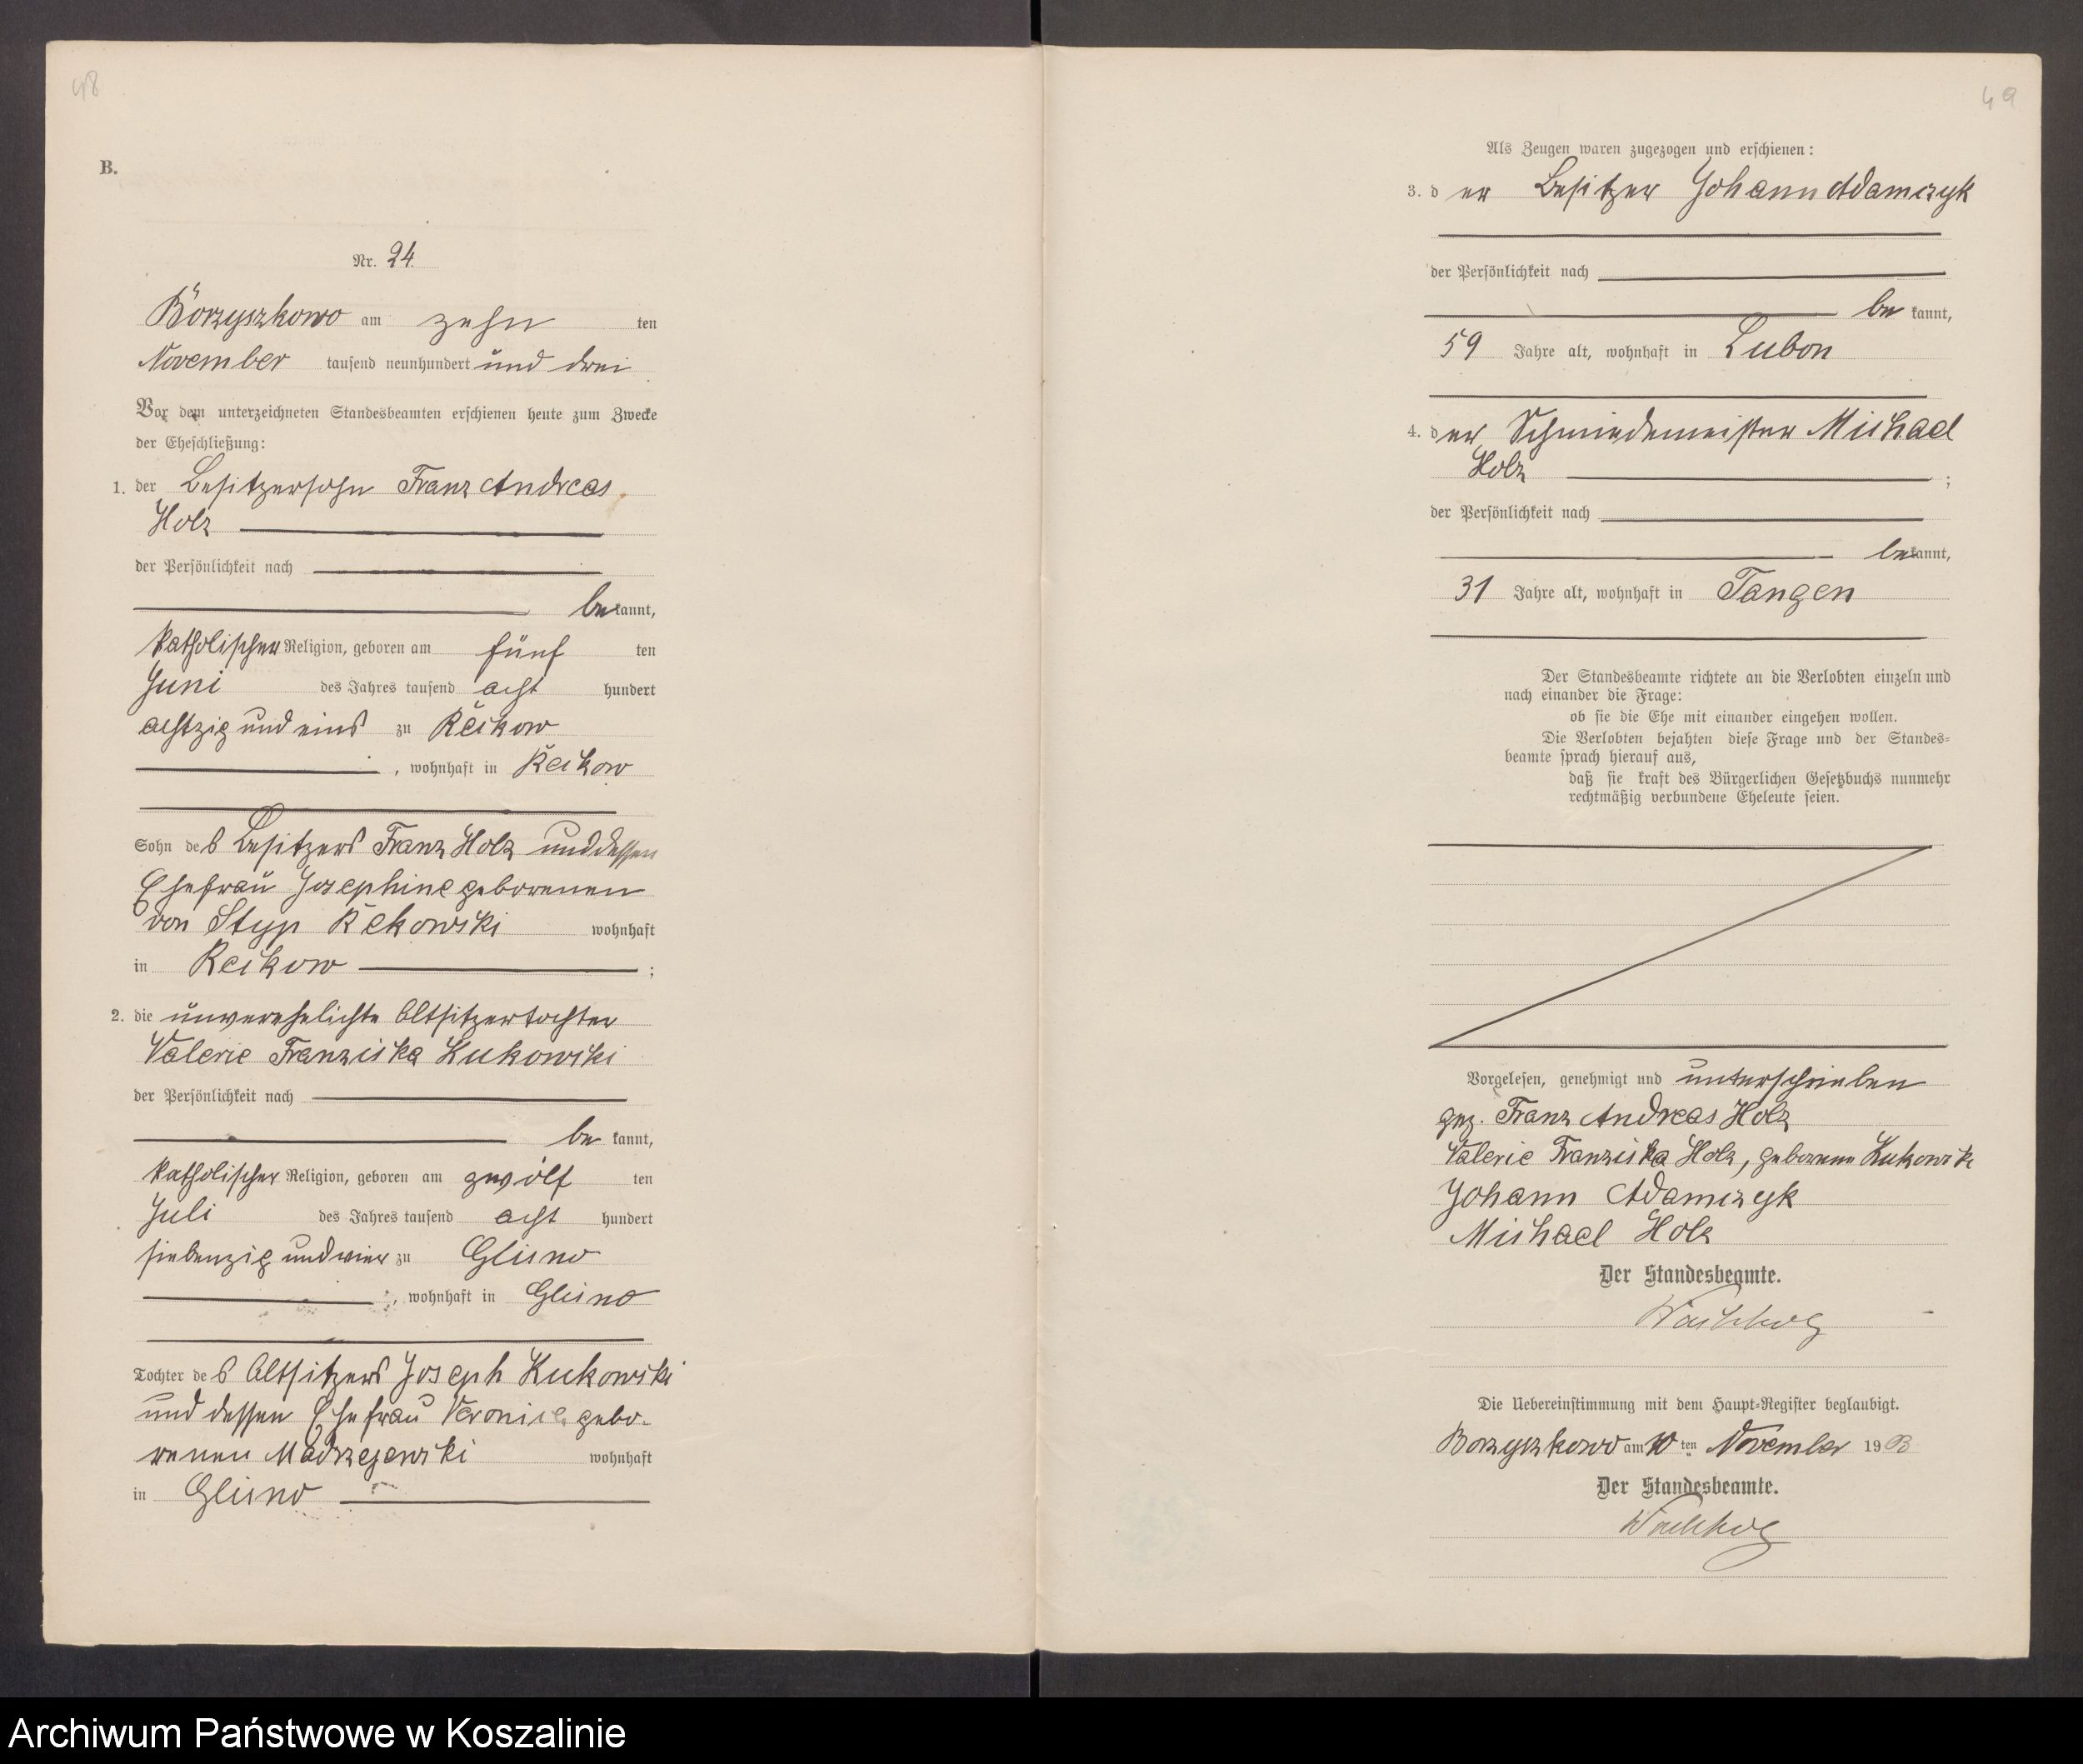 48
B.
Nr. 24
Borzyszkowo am zehn ten
November tausend neunhundert und drei
Vor dem unterzeichneten Standesbeamten erschienen heute zum Zwecke
der Eheschließung:
1. der Besitzersohn Franz Andreas
Holz
der Persönlichkeit nach
bekannt,
katholischer Religion, geboren am fünf ten
Juni des Jahres tausend acht hundert
achtzig und eins zu Reikow
, wohnhaft in Reikow
Sohn des Besitzers Franz Holz und dessen
Ehefrau Josephine geborenen
von Styp Rekowski wohnhaft
in Reikow ;
2. die unverehelichte Altsitzertochter
Valerie Franziska Kukowski
der Persönlichkeit nach
bekannt,
katholischer Religion, geboren am zwölf ten
Juli des Jahres tausend acht hundert
siebenzig und vier zu Glisno
, wohnhaft in Glisno
Tochter des Altsitzers Joseph Kukowski
und dessen Ehefrau Veronica gebo-
renen Madrzejewski wohnhaft
in Glisno
49
Als Zeugen waren zugezogen und erschienen:
3. der Besitzer Johann Adamczyk
der Persönlichkeit nach
bekannt,
59 Jahre alt, wohnhaft in Lubon
4. der Schmiedemeister Michael
Holz ;
der Persönlichkeit nach
bekannt,
31 Jahre alt, wohnhaft in Tangen
Der Standesbeamte richtete an die Verlobten einzeln und
nach einander die Frage:
ob sie die Ehe mit einander eingehen wollen.
Die Verlobten bejahten diese Frage und der Standes-
beamte sprach hierauf aus,
daß sie kraft des Bürgerlichen Gesetzbuchs nunmehr
rechtmäßig verbundene Eheleute seien.
Vorgelesen, genehmigt und unterschrieben
gez. Franz Andreas Holz
Valerie Franziska Holz, geborene Kukowski
Johann Adamczyk
Michael Holz
Der Standesbeamte.
Die Uebereinstimmung mit dem Haupt-Register beglaubigt.
Borzyszkowo am 10 ten November 1903
Der Standesbeamte.
Archiwum Państwowe w Koszalinie